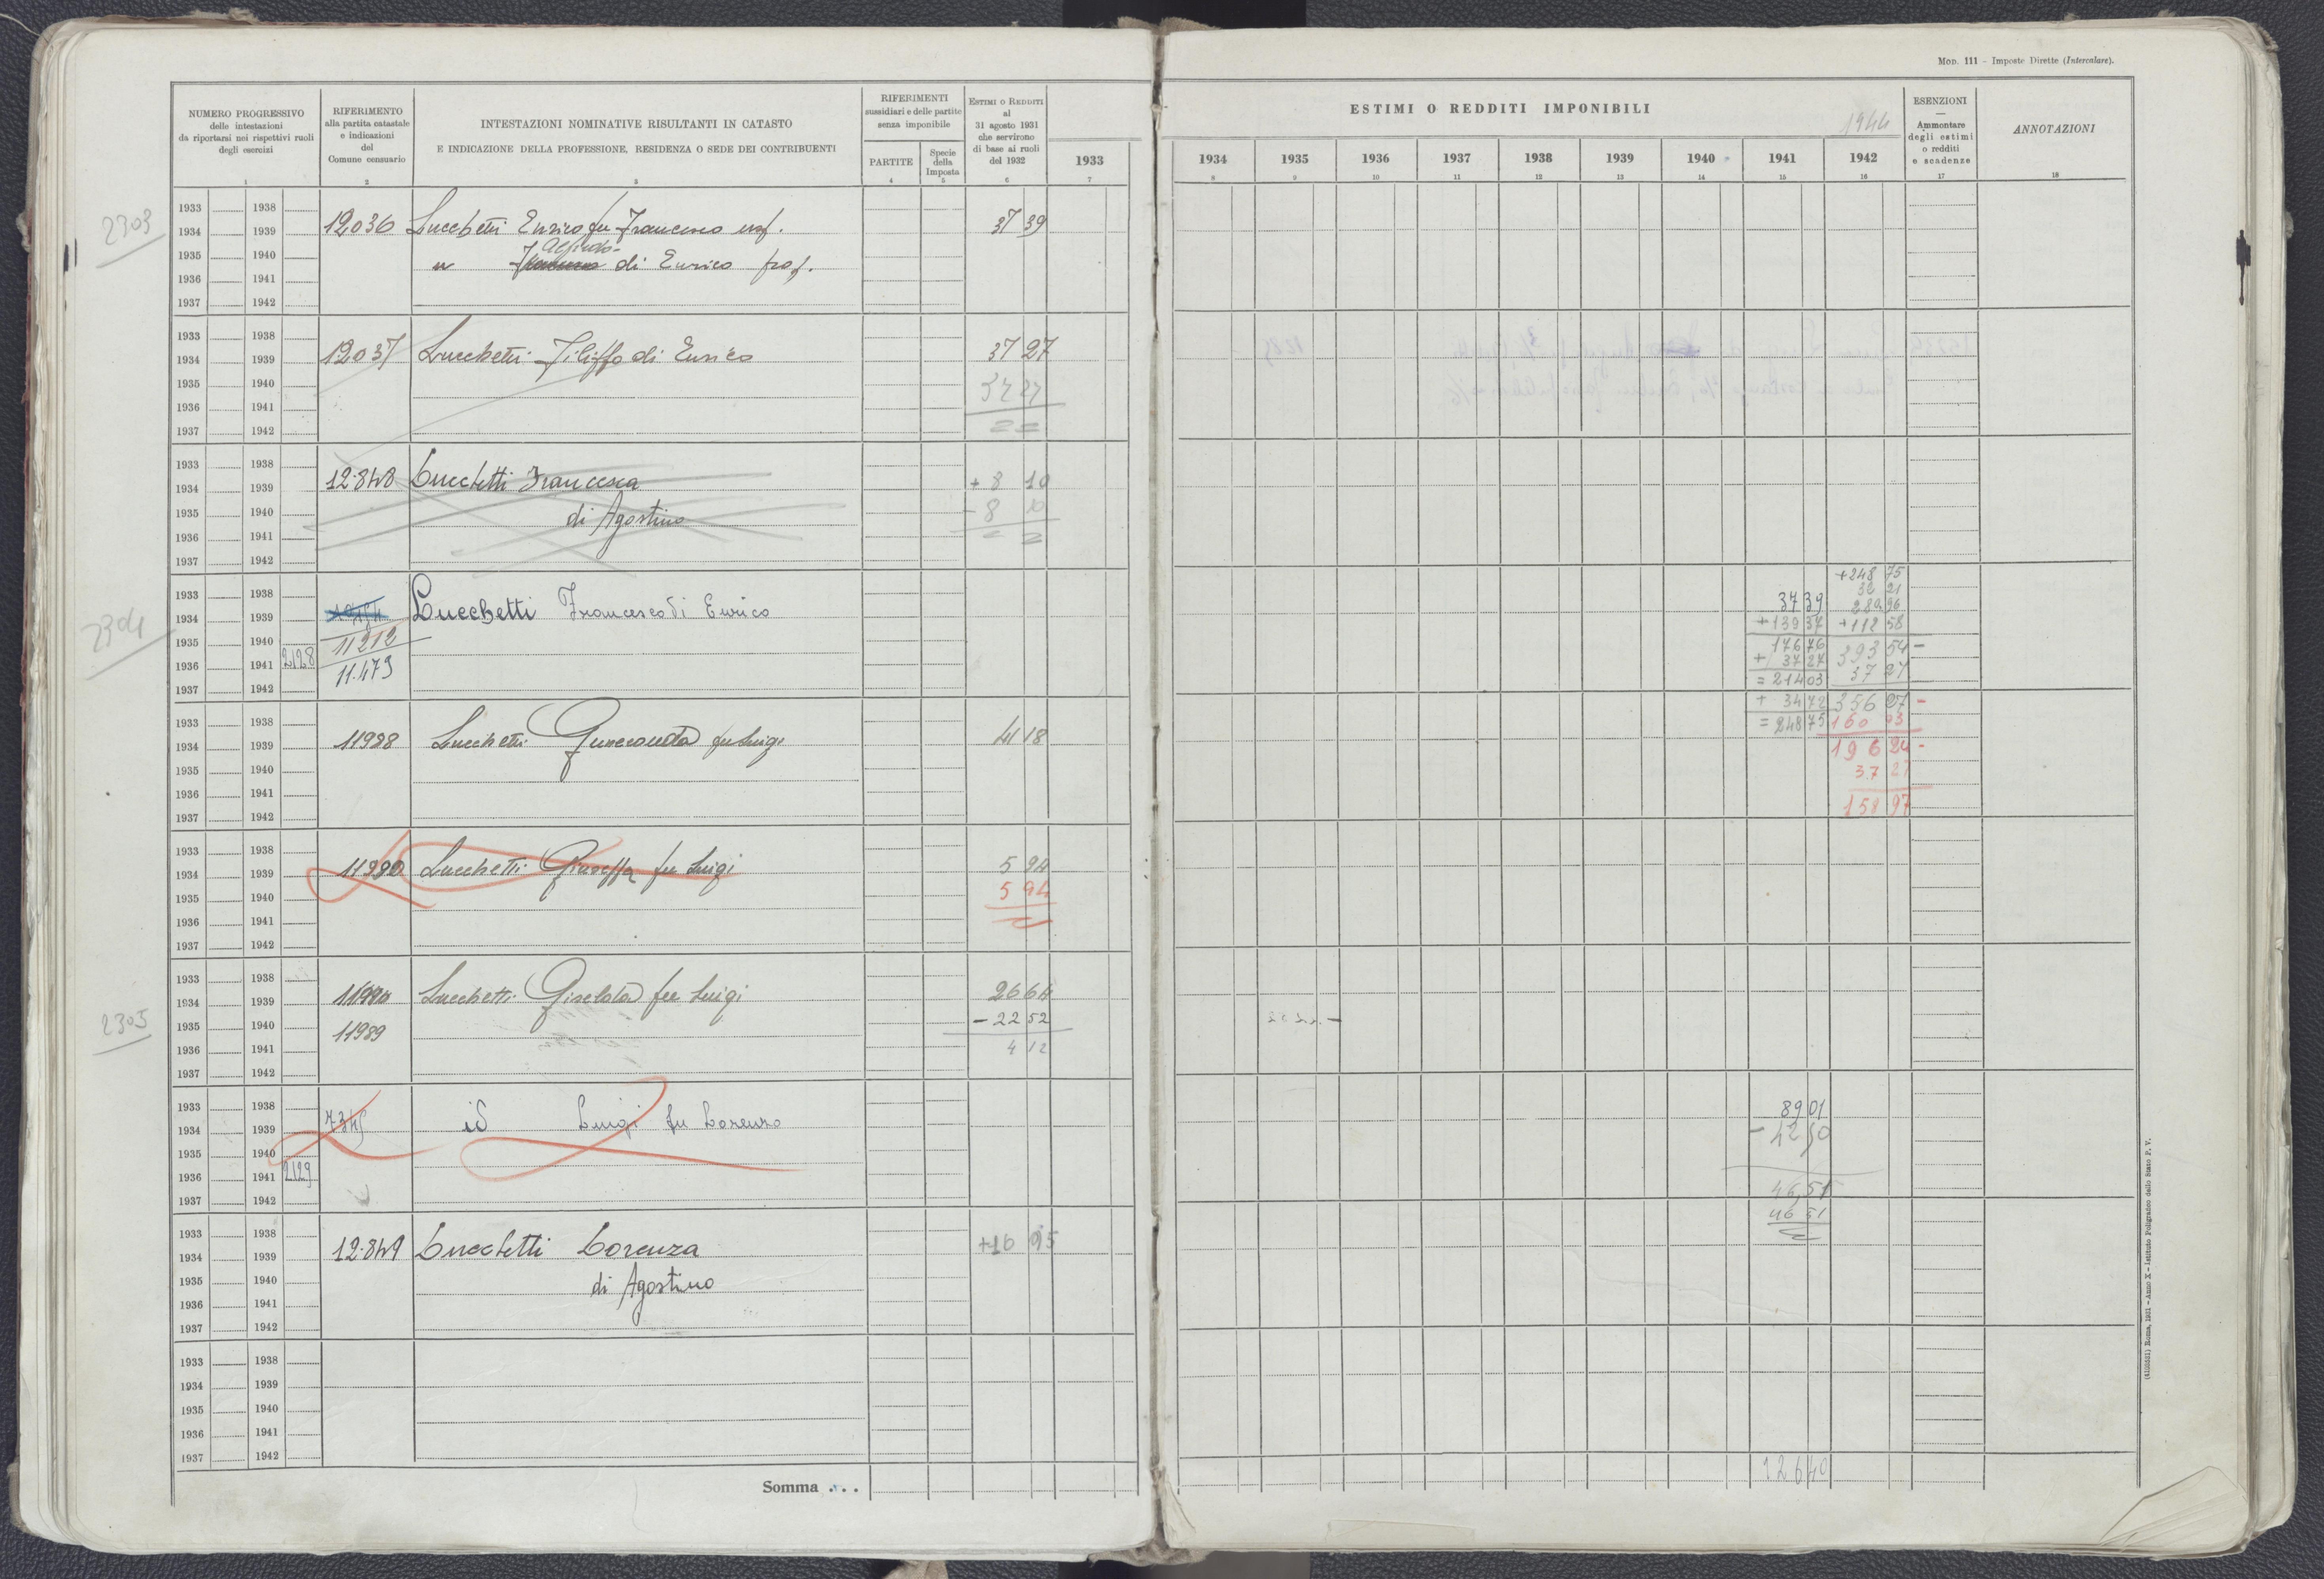 Mod. 111 - Imposte Dirette (Intercalare).
NUMERO PROGRESSIVO
delle intestazioni
da riportarsi nei rispettivi ruoli
degli esercizi
1
RIFERIMENTO
alla partita catastale
e indicazioni
del
Comune censuario
2
INTESTAZIONI NOMINATIVE RISULTANTI IN CATASTO
E INDICAZIONE DELLA PROFESSIONE, RESIDENZA O SEDE DEI CONTRIBUENTI
3
RIFERIMENTI
sussidiari e delle partite
senza imponibile
PARTITE
4
Specie
della
Imposta
5
Estimi o Redditi
al
31 agosto 1931
che servirono
di base ai ruoli
del 1932
6
1933
7
ESTIMI O REDDITI IMPONIBILI
1944
1934 1935 1936 1937 1938 1939 1940 1941 1942
8 9 10 11 12 13 14 15 16
ESENZIONI
Ammontare
degli estimi
o redditi
e scadenze
17
ANNOTAZIONI
18
2303
1933 1938
1934 1939 12036 Lucchetti Enrico fu Francesco usf. 37 39
Alfredo
1935 1940 di Enrico prof.
1936 1941
1937 1942
1933 1938
1934 1939 12037 Lucchetti Filippo di Enrico 37 27
1935 1940 37 27
1936 1941
1937 1942
1933 1938
1934 1939 12.848 Lucchetti Francesca + 8 10
1935 1940 di Agostino - 8 10
1936 1941
1937 1942
2304
+248 75
1933 1938 32 21
1934 1939 Lucchetti Francesco di Enrico 37 39 280 96
1935 1940 11212 +139 37 +112 58
1936 1941 2128 11.473 176 76 393 54 -
+ 37 27 37 27
1937 1942 = 214 03
+ 34 72 356 27 -
1933 1938 = 248 75 160 03
1934 1939 11988 Lucchetti fu Luigi 4 18 196 24 -
1935 1940 37 27
1936 1941
1937 1942 158 97
1933 1938
1934 1939 11990 Lucchetti Giuseppa fu Luigi 5 94
1935 1940 5 94
1936 1941
1937 1942
2305
1933 1938
1934 1939 Lucchetti Giselda fu Luigi 26 64
1935 1940 11989 - 22 52
1936 1941 4 12
1937 1942
1933 1938 89 01
1934 1939 7345 id Luigi fu Lorenzo - 42 50
1935 1940
1936 1941 2129
1937 1942 46,51
46 51
1933 1938
1934 1939 12.849 Lucchetti Lorenza +16 95
1935 1940 di Agostino
1936 1941
1937 1942
1933 1938
1934 1939
1935 1940
1936 1941
1937 1942
Somma . . . 126 40